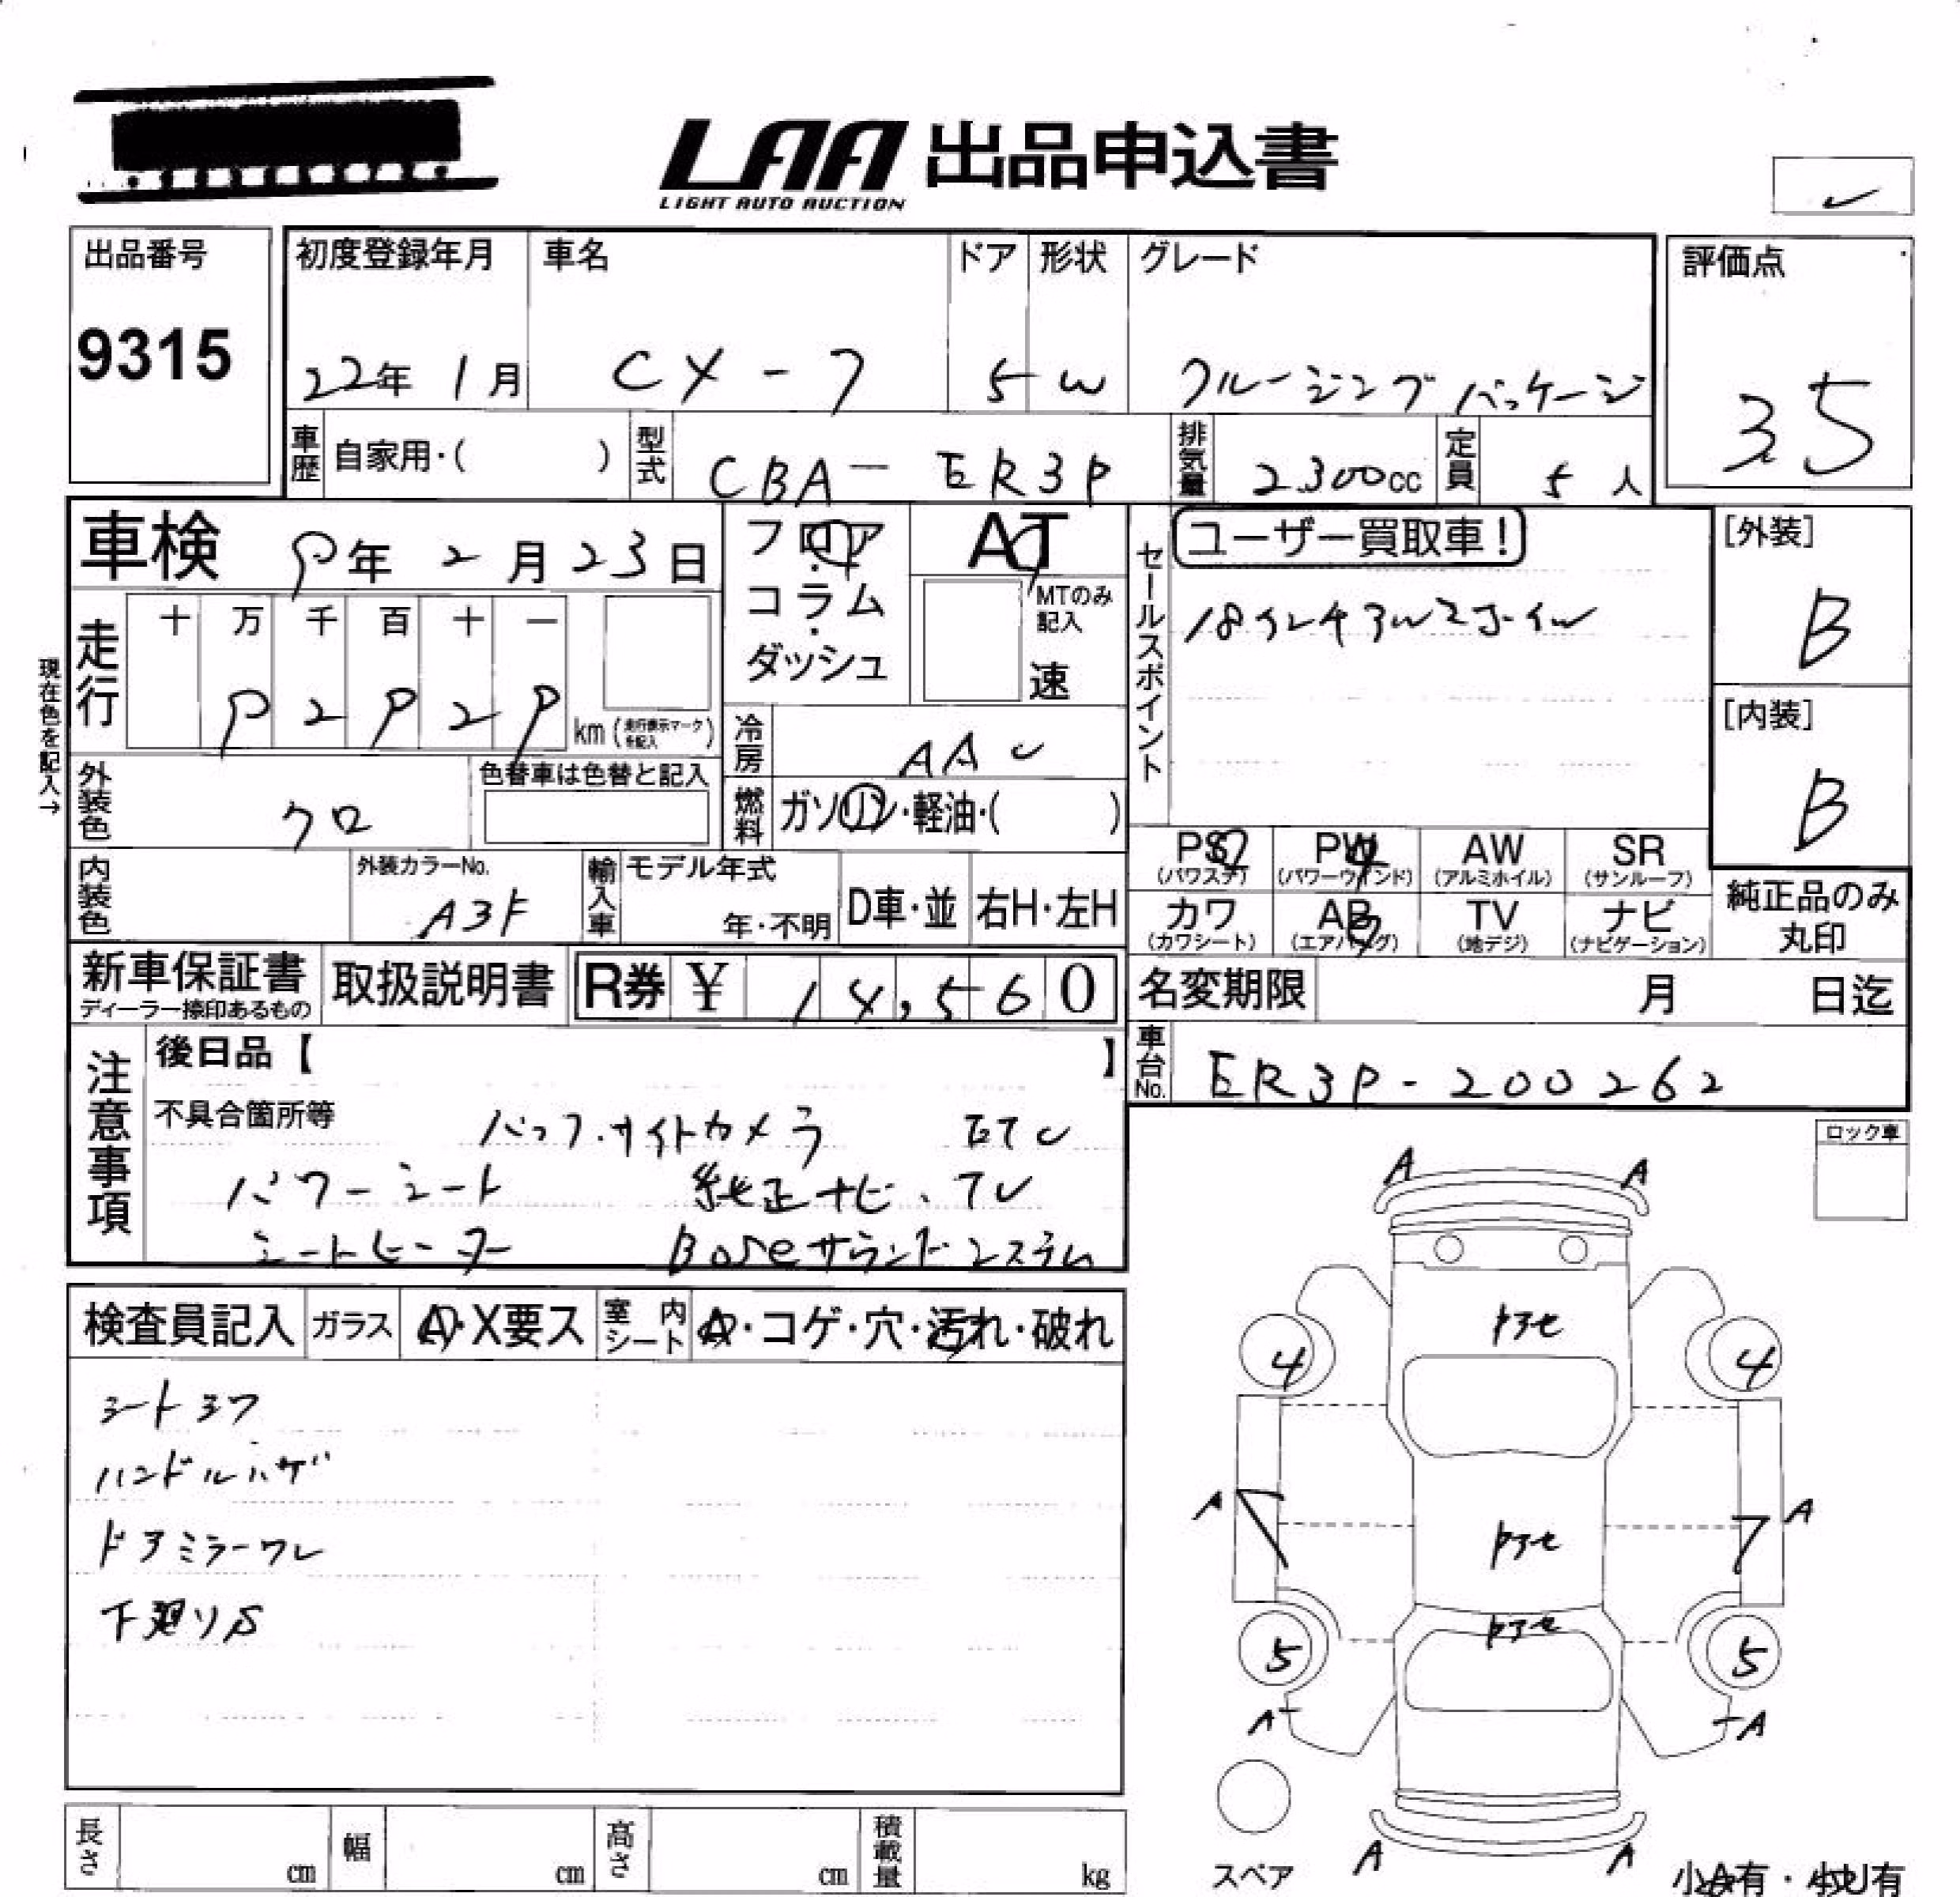 LAA 出品申込書
LIGHT AUTO AUCTION
出品番号
9315
初度登録年月
22年 1月
車名
CX-7
ドア
5
形状
W
グレード
クルージングパッケージ
評価点
3.5
車歴 自家用・( )
型式 CBA-ER3P
排気量 2300cc
定員 5人
車検 9年 2月 23日
走行
十 万 千 百 十 一
9 2 9 2 9
km (走行表示マークを記入)
現在色を記入→
フロア・コラム・ダッシュ
AT
MTのみ記入
速
冷房 AAC
燃料 ガソリン・軽油・( )
外装色 クロ
色替車は色替と記入
内装色
外装カラーNo.
A3F
輸入車
モデル年式
年・不明
D車・並
右H・左H
セールスポイント
ユーザー買取車!
18インチアルミホイール
[外装]
B
[内装]
B
PS (パワステ)
PW (パワーウインド)
AW (アルミホイル)
SR (サンルーフ)
カワ (カワシート)
AB (エアバッグ)
TV (地デジ)
ナビ (ナビゲーション)
純正品のみ丸印
新車保証書
ディーラー捺印あるもの
取扱説明書
R券 ¥ 14,560
名変期限 月 日迄
車台No. ER3P-200262
注意事項
後日品【 】
不具合箇所等
バック.サイドカメラ ETC
パワーシート 純正ナビ、TV
シートヒーター Boseサウンドシステム
検査員記入
ガラス A・X要ス
室内シート A・コゲ・穴・汚れ・破れ
シートシワ
ハンドルハゲ
ドアミラーワレ
下廻りS
ロック車
A A
トアセ
4 4
A A
トアセ
トアセ
5 5
A A
スペア
A A
小A有・小U有
長さ cm
幅 cm
高さ cm
積載量 kg